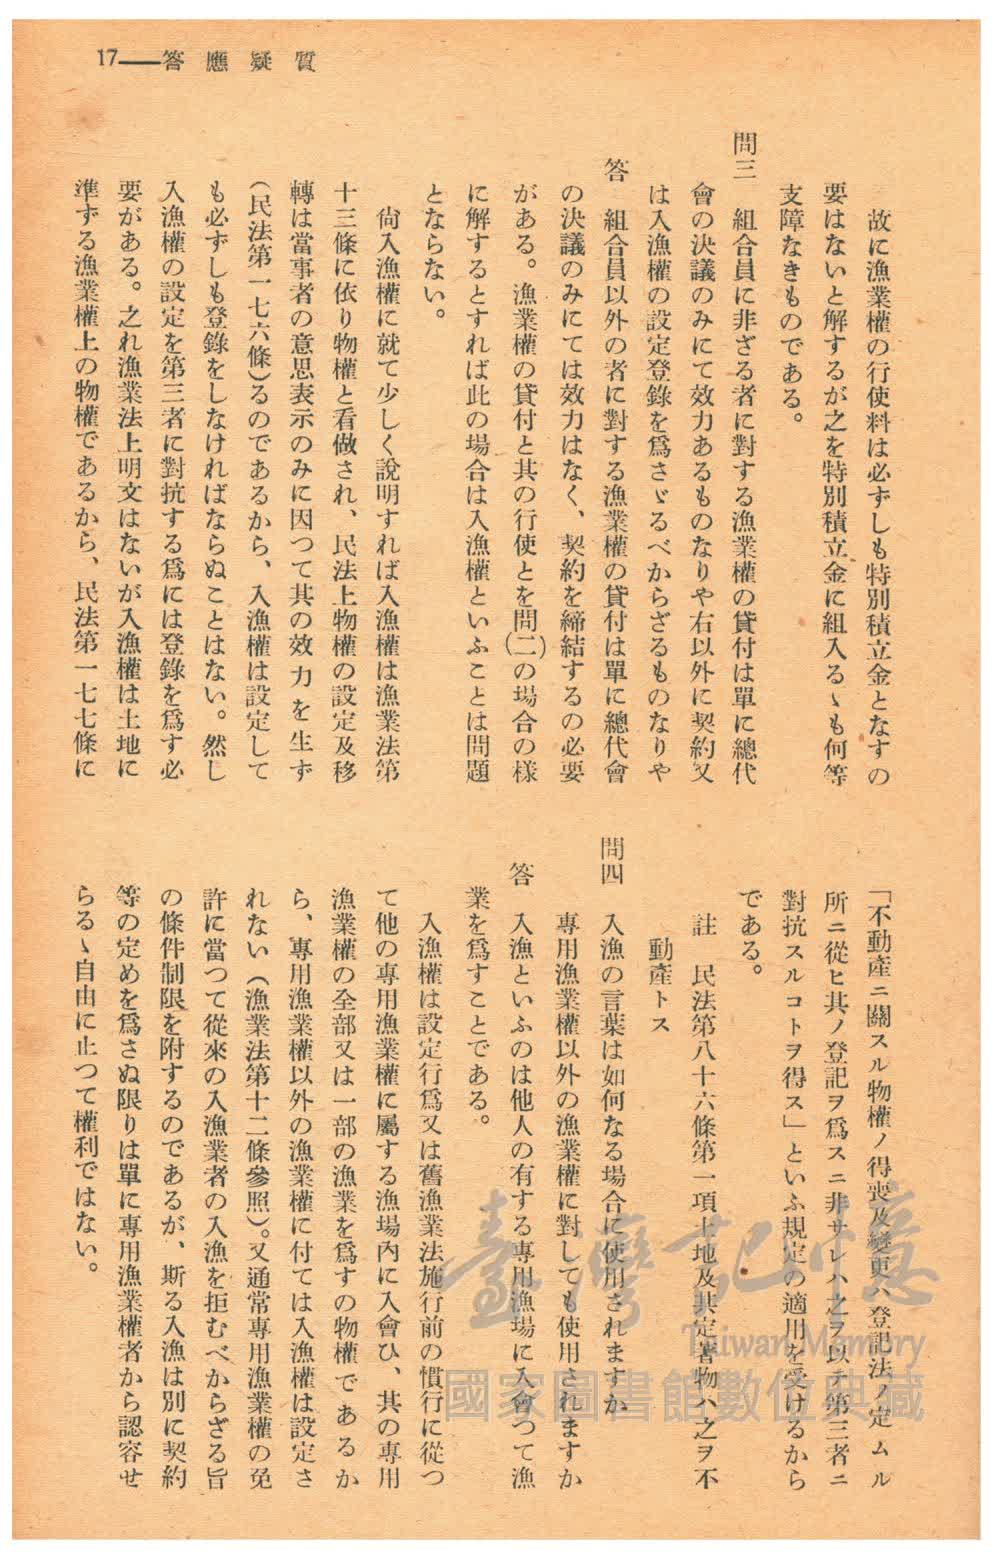 17——答應疑質
故に漁業權の行使料は必ずしも特別積立金となすの
要はないと解するが之を特別積立金に組入るゝも何等
支障なきものである。
問三　組合員に非ざる者に對する漁業權の貸付は單に總代
會の決議のみにて效力あるものなりや右以外に契約又
は入漁權の設定登錄を爲さゞるべからざるものなりや
答　組合員以外の者に對する漁業權の貸付は單に總代會
の決議のみにては效力はなく、契約を締結するの必要
がある。漁業權の貸付と其の行使とを問(二)の場合の樣
に解するとすれば此の場合は入漁權といふことは問題
とならない。
尙入漁權に就て少しく說明すれば入漁權は漁業法第
十三條に依り物權と看做され、民法上物權の設定及移
轉は當事者の意思表示のみに因つて其の效力を生ず
(民法第一七六條)るのであるから、入漁權は設定して
も必ずしも登錄をしなければならぬことはない。然し
入漁權の設定を第三者に對抗する爲には登錄を爲す必
要がある。之れ漁業法上明文はないが入漁權は土地に
準ずる漁業權上の物權であるから、民法第一七七條に
「不動產ニ關スル物權ノ得喪及變更ハ登記法ノ定ムル
所ニ從ヒ其ノ登記ヲ爲スニ非サレハ之ヲ以テ第三者ニ
對抗スルコトヲ得ス」といふ規定の適用を受けるから
である。
註　民法第八十六條第一項土地及其定著物ハ之ヲ不
動產トス
問四　入漁の言葉は如何なる場合に使用されますか
專用漁業權以外の漁業權に對しても使用されますか
答　入漁といふのは他人の有する專用漁場に入會つて漁
業を爲すことである。
入漁權は設定行爲又は舊漁業法施行前の慣行に從つ
て他の專用漁業權に屬する漁場內に入會ひ、其の專用
漁業權の全部又は一部の漁業を爲すの物權であるか
ら、專用漁業權以外の漁業權に付ては入漁權は設定さ
れない(漁業法第十二條參照)。又通常專用漁業權の免
許に當つて從來の入漁業者の入漁を拒むべからざる旨
の條件制限を附するのであるが、斯る入漁は別に契約
等の定めを爲さぬ限りは單に專用漁業權者から認容せ
らるゝ自由に止つて權利ではない。
臺灣記憶
Taiwan Memory
國家圖書館數位典藏